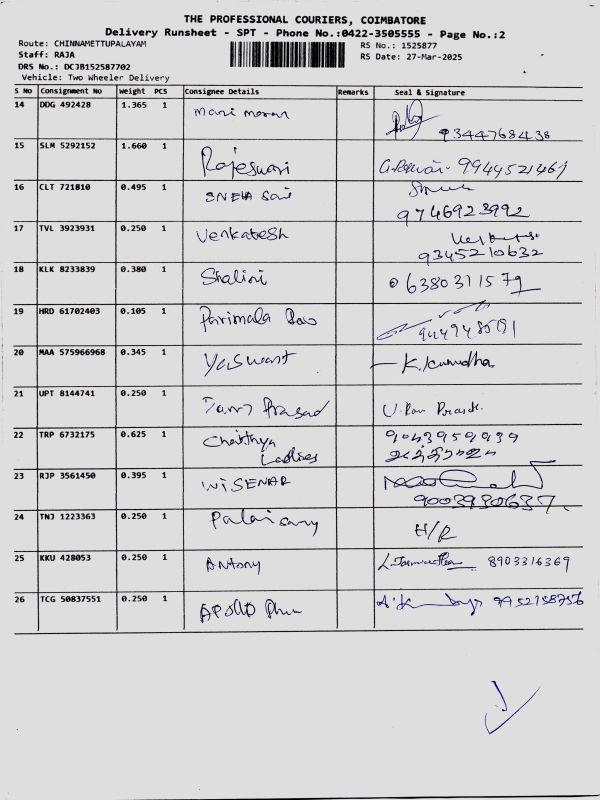 THE PROFESSIONAL COURIERS, COIMBATORE
Delivery Runsheet - SPT - Phone No.:0422-3505555 - Page No.:2
Route: CHINNAMETTUPALAYAM
Staff: RAJA
DRS No.: DCJB152587702
Vehicle: Two Wheeler Delivery
RS No.: 1525877
RS Date: 27-Mar-2025
S No Consignment No Weight PCS Consignee Details Remarks Seal & Signature
14 DDG 492428 1.365 1 mani moran 9344768438
15 SLM 5292152 1.660 1 Rajeswari
16 CLT 721810 0.495 1 SNEHA Sai
9746923992
17 TVL 3923931 0.250 1 Venkatesh
9345210632
18 KLK 8233839 0.380 1 Shalini 6380311579
19 HRD 61702403 0.105 1 Parimala
20 MAA 575966968 0.345 1 Yaswant K. Kumudha
21 UPT 8144741 0.250 1 Prasad
22 TRP 6732175 0.625 1 9043959939
Ladies
23 RJP 3561450 0.395 1 WISENAR
9003930637
24 TNJ 1223363 0.250 1 Palaisamy H/R
25 KKU 428053 0.250 1 Antony 8903316369
26 TCG 50837551 0.250 1 APOLLO 9952158756